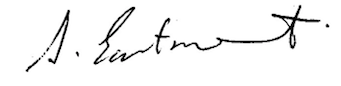 S. Eastment.